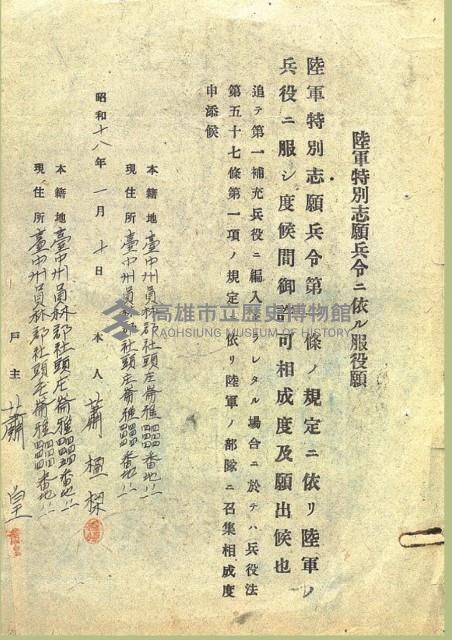 陸軍特別志願兵令ニ依ル服役願
陸軍特別志願兵令第 條ノ規定ニ依リ陸軍ノ
兵役ニ服シ度候間御許可相成度及願出候也
追テ第一補充兵役ニ編入セラレタル場合ニ於テハ兵役法
第五十七條第一項ノ規定ニ依リ陸軍ノ部隊ニ召集相成度
申添候
昭和十八年一月十日
本籍地 臺中州員林郡社頭庄崙雅 番地
現住所 臺中州員林郡社頭庄崙雅 番地
本人 蕭
本籍地 臺中州員林郡社頭庄崙雅 番地
現住所 臺中州員林郡社頭庄崙雅 番地
戸主 蕭
高雄市立歷史博物館
KAOHSIUNG MUSEUM OF HISTORY